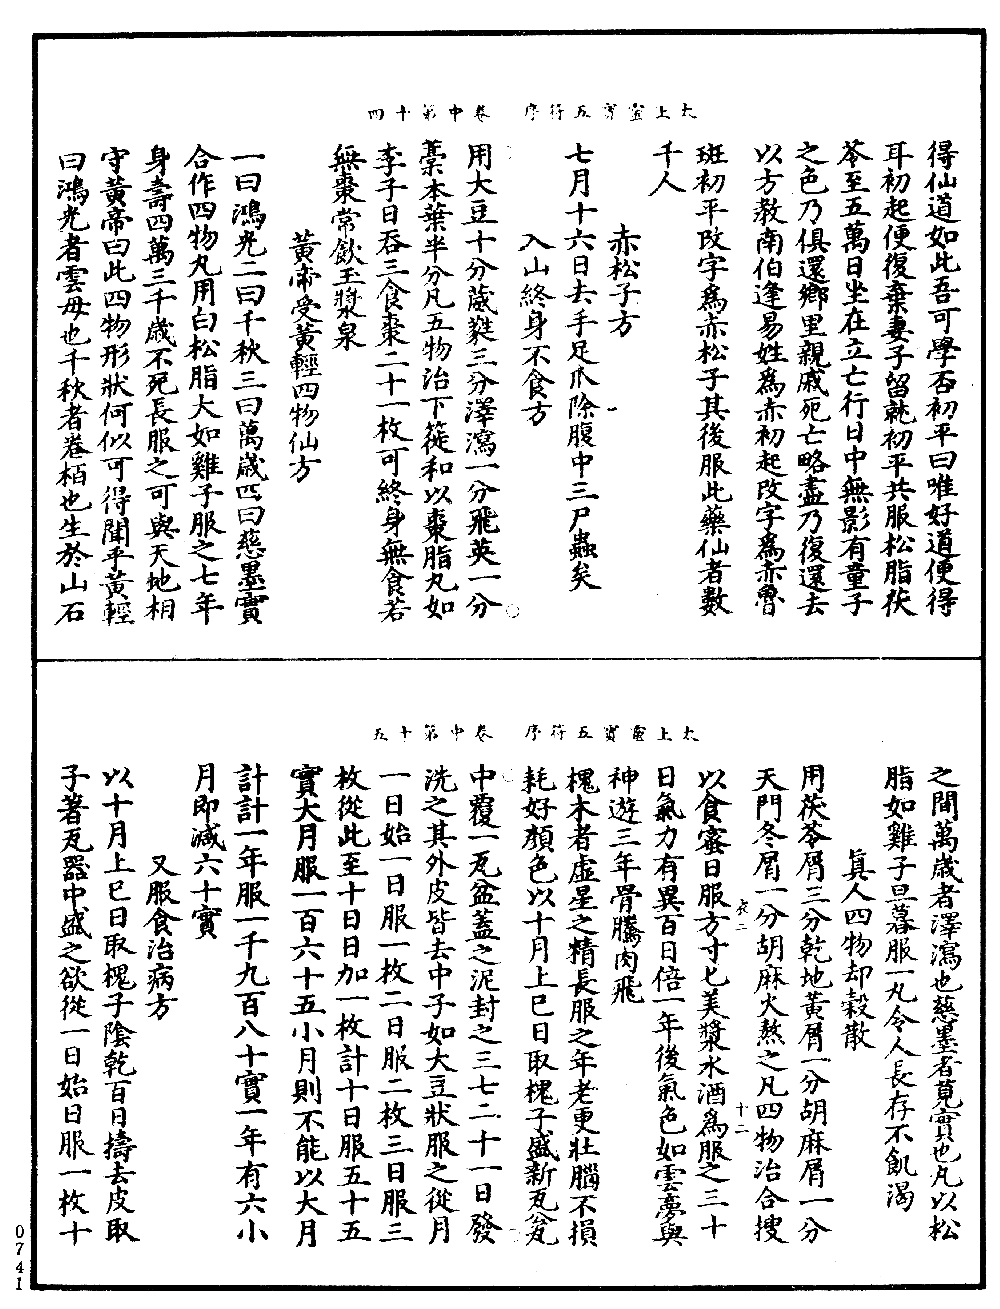 太上靈寶五符序　卷中第十四
得仙道如此吾可學否初平曰唯好道便得
耳初起便復棄妻子留就初平共服松脂茯
苓至五萬日坐在立亡行日中無影有童子
之色乃俱還鄉里親戚死亡略盡乃復還去
以方教南伯逢易姓爲赤初起改字爲赤魯
班初平改字爲赤松子其後服此藥仙者數
千人
赤松子方
七月十六日去手足爪除腹中三尸蟲矣
入山終身不食方
用大豆十分葳蕤三分澤瀉一分飛英一分
藁本葉半分凡五物治下簁和以棗脂丸如
李子日吞三食棗二十一枚可終身無食若
無棗常飲玉漿泉
黃帝受黃輕四物仙方
一曰鴻光二曰千秋三曰萬歲四曰慈墨實
合作四物丸用白松脂大如雞子服之七年
身壽四萬三千歲不死長服之可與天地相
守黃帝曰此四物形狀何似可得聞乎黃輕
曰鴻光者雲母也千秋者卷栢也生於山石
太上靈寶五符序　卷中第十五
之間萬歲者澤瀉也慈墨者莧實也凡以松
脂如雞子旦暮服一丸令人長存不飢渴
眞人四物却穀散
用茯苓屑三分乾地黃屑一分胡麻屑一分
天門冬屑一分胡麻火熬之凡四物治合搜
以食蜜日服方寸匕美漿水酒爲服之三十
衣二　十二
日氣力有異百日倍一年後氣色如雲夢與
神遊三年骨騰肉飛
槐木者虛星之精長服之年老更壯腦不損
耗好顏色以十月上巳日取槐子盛新瓦瓮
中覆一瓦盆蓋之泥封之三七二十一日發
洗之其外皮皆去中子如大豆狀服之從月
一日始一日服一枚二日服二枚三日服三
枚從此至十日日加一枚計十日服五十五
實大月服一百六十五小月則不能以大月
計計一年服一千九百八十實一年有六小
月即減六十實
又服食治病方
以十月上巳日取槐子陰乾百日擣去皮取
子著瓦器中盛之欲從一日始日服一枚十
0741